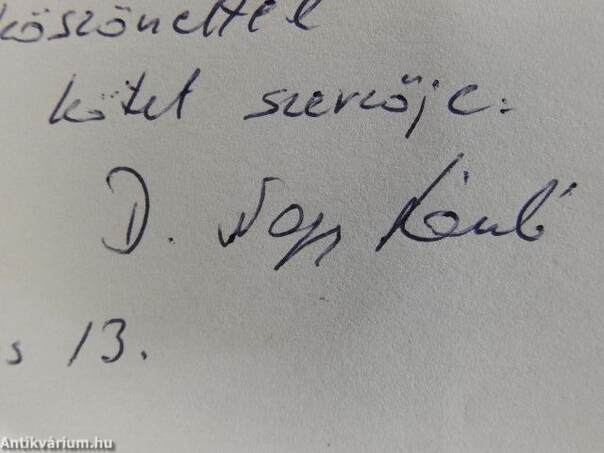 köszönettel
kötet szerzője:
D. Nagy
s 13.
Antikvárium.hu